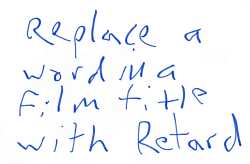 Replace a
word in a
Film title
with Retard